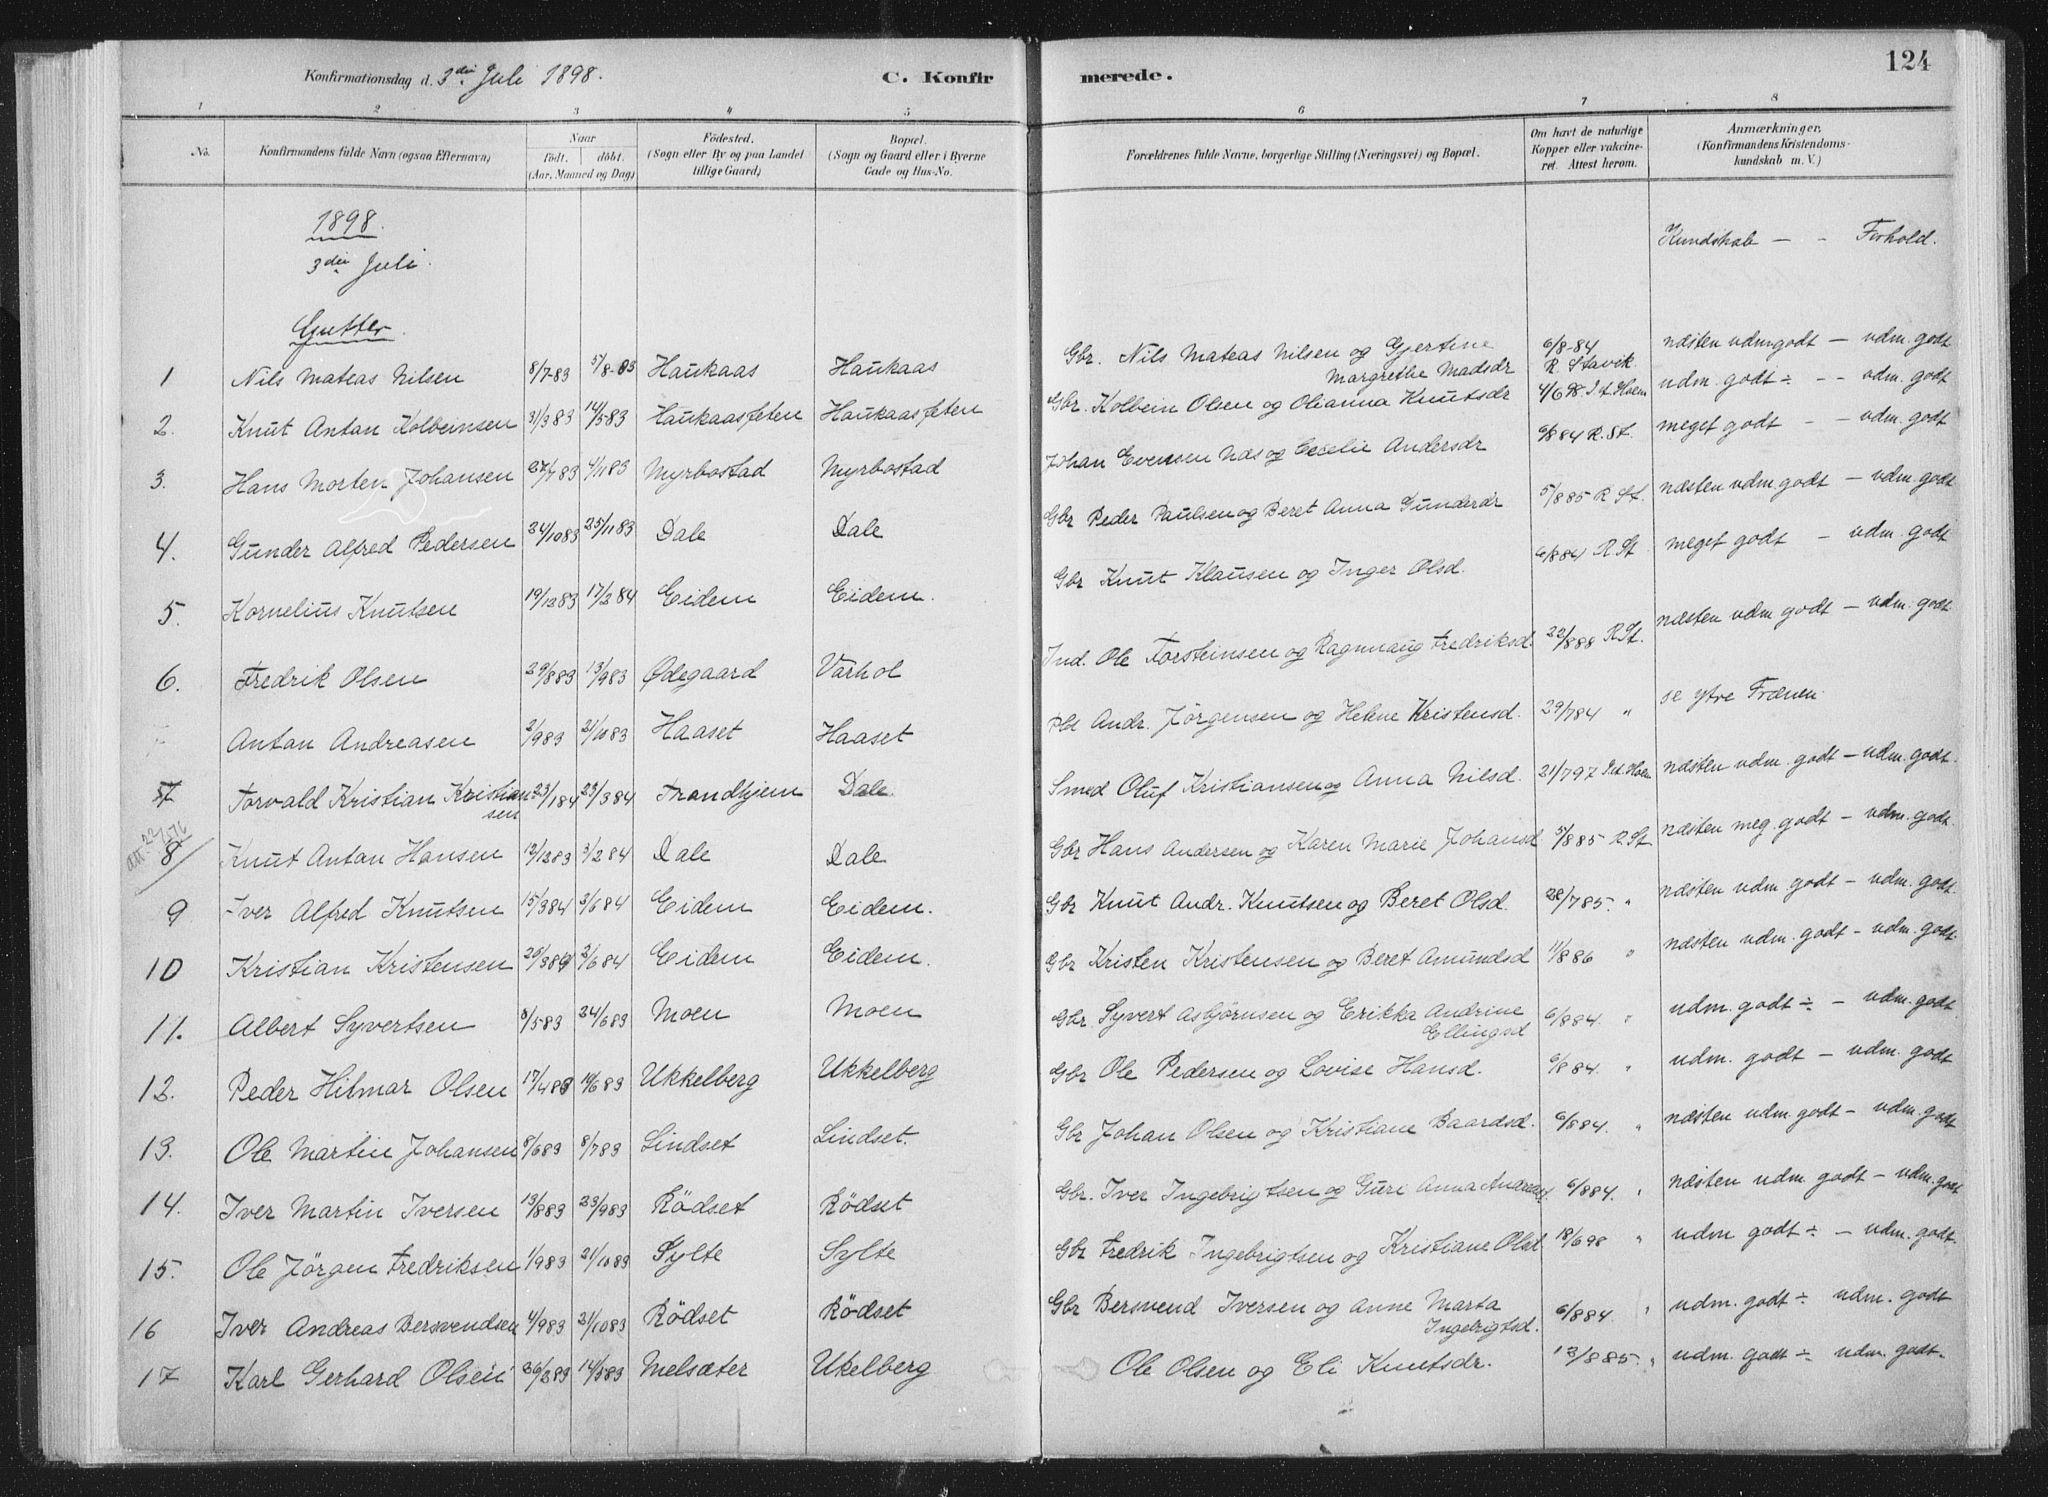 Konfirmationsdag d. 3die Juli 1898.
C. Konfir
merede.
124
1 2 3 4 5 6 7 8
No.
Konfirmandens fulde Navn (ogsaa Efternavn)
Naar
födt. döbt.
(Aar, Maaned og Dag)
Födested.
(Sogn eller By og paa Landet
tillige Gaard)
Bopæl.
(Sogn og Gaard eller i Byerne
Gade og Hus-No.
Forældrenes fulde Navne, borgerlige Stilling (Næringsvei) og Bopæl.
Om havt de naturlige
Kopper eller vakcine-
ret. Attest herom.
Anmærkninger.
(Konfirmandens Kristendoms-
kundskab m. V.)
1898.
3die Juli.
Kundskab — - Forhold.
Gutter.
1 Nils Mateas Nilsen 8/7-83 5/8-83 Haukaas Haukaas Gbr. Nils Mateas Nilsen og Gjertine Margrethe Madsdr 6/8-84 R. Stavik næsten udmgodt — udm. godt
2. Knut Antan Kolbeinsen 31/383 14/583 Haukaasfeten Haukaasfeten Gbr. Kolbein Olsen og Olianna Knutsdr 4/698 I.t. Holm udm. godt ÷ - - udm. godt
3. Hans Morten Johansen 27/783 4/1183 Myrbostad Myrbostad Johan Evensen Næs og Cecelie Andersdr 6/884 R. St. meget godt - - udm. godt
4. Gunder Alfred Pedersen 24/1083 25/1183 Dale Dale Gbr Peder Paulsen og Beret Anna Gunderdr 5/885 R St. næsten udm. godt — udm. godt
5. Kornelius Knutsen 19/1283 17/284 Eidem Eidem. Gbr Knut Klausen og Inger Olsd. 6/884 R St meget godt - udm. godt
6. Fredrik Olsen 29/883 13/983 Ødegaard Varhol Ind. Ole Torsteinsen og Ragnnaug Fredriksd. 22/888 R St. næsten udm godt — udm. godt
Antan Andreasen 2/983 21/1083 Haaset Haaset Pld Andr. Jörgensen og Helene Kristensd. 29/784 " se ytre Frænen
7 Torvald Kristian Kristiansen 23/184 23/384 Trondhjem Dale Smed Oluf Kristiansen og Anna Nilsd. 21/797 næsten udm. godt — udm. godt.
att. 22/5 76
8 Knut Antan Hansen 12/1283 3/284 Dale Dale Gbr Hans Andersen og Karen Marie Johansd 5/885 R. St næsten meg. godt — udm. godt.
9 Iver Alfred Knutsen 15/384 3/684 Eidem Eidem. Gbr Knut Andr. Knutsen og Beret Olsd. 28/785. " næsten udm. godt — udm. godt.
10 Kristian Kristensen 25/384 3/684 Eidem Eidem. Gbr Kristen Kristensen og Beret Amundsd 11/886 " næsten udm. godt - udm. godt.
11. Albert Syvertsen 8/583 24/683 Moen Moen Gbr Syvert Asbjörnsen og Erikka Andrine Ellingsd 6/884. " udm. godt ÷ - udm. godt
12. Peder Hilmar Olsen 17/483 10/683 Ukkelberg Ukkelberg Gbr Ole Pedersen og Lovise Hansd. 6/884. " udm. godt — udm. godt
13. Ole Martin Johansen 8/683 8/783 Lindset Lindset. Gbr Johan Olsen og Kristiane Baardsd. 6/884. " næsten udm. godt - udm. godt
14. Iver Martin Iversen 13/883 23/983 Rödset Rödset Gbr. Iver Ingebrigtsen og Guri Anna Andreasd 6/884. " næsten udm godt - udm. godt
15. Ole Jörgen Fredriksen 1/983 21/1083 Sylte Sylte Gbr Fredrik Ingebrigtsen og Kristiane Olsd 18/698 " udm godt ÷ - udm. godt.
16 Iver Andreas Bersvendsen 4/983 21/1083 Rödset Rödset Gbr Bersvend Iversen og Anne Marta Ingebrigtsd. 6/884. " udm. godt ÷ udm. godt
17 Karl Gerhard Olsen 26/283 14/583 Melsæter Ukelberg Ole Olsen og Eli Knutsdr. 12/885. " udm. godt ÷ udm. godt.